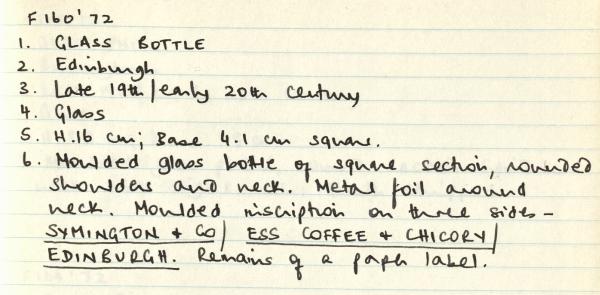 F 160 '72
1. GLASS BOTTLE
2. Edinburgh
3. Late 19th/early 20th century
4. Glass
5. H.16 cm; Base 4.1 cm square.
6. Moulded glass bottle of square section, rounded
shoulders and neck. Metal foil around
neck. Moulded inscription on three sides –
SYMINGTON + CO/ ESS COFFEE + CHICORY/
EDINBURGH. Remains of a paper label.